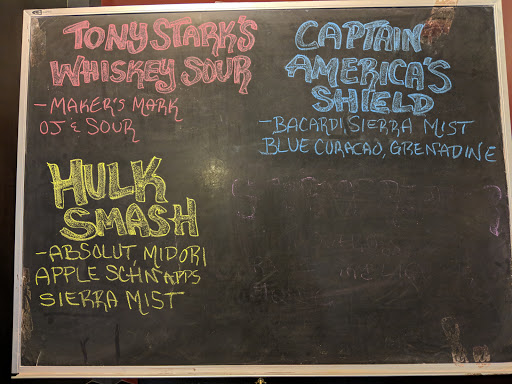 TONY STARK'S
WHISKEY SOUR
- MAKER'S MARK
OJ & SOUR
CAPTAIN
AMERICA'S
SHIELD
- BACARDI, SIERRA MIST
BLUE CURACAO, GRENADINE
HULK
SMASH
- ABSOLUT, MIDORI
APPLE SCHNAPPS
SIERRA MIST